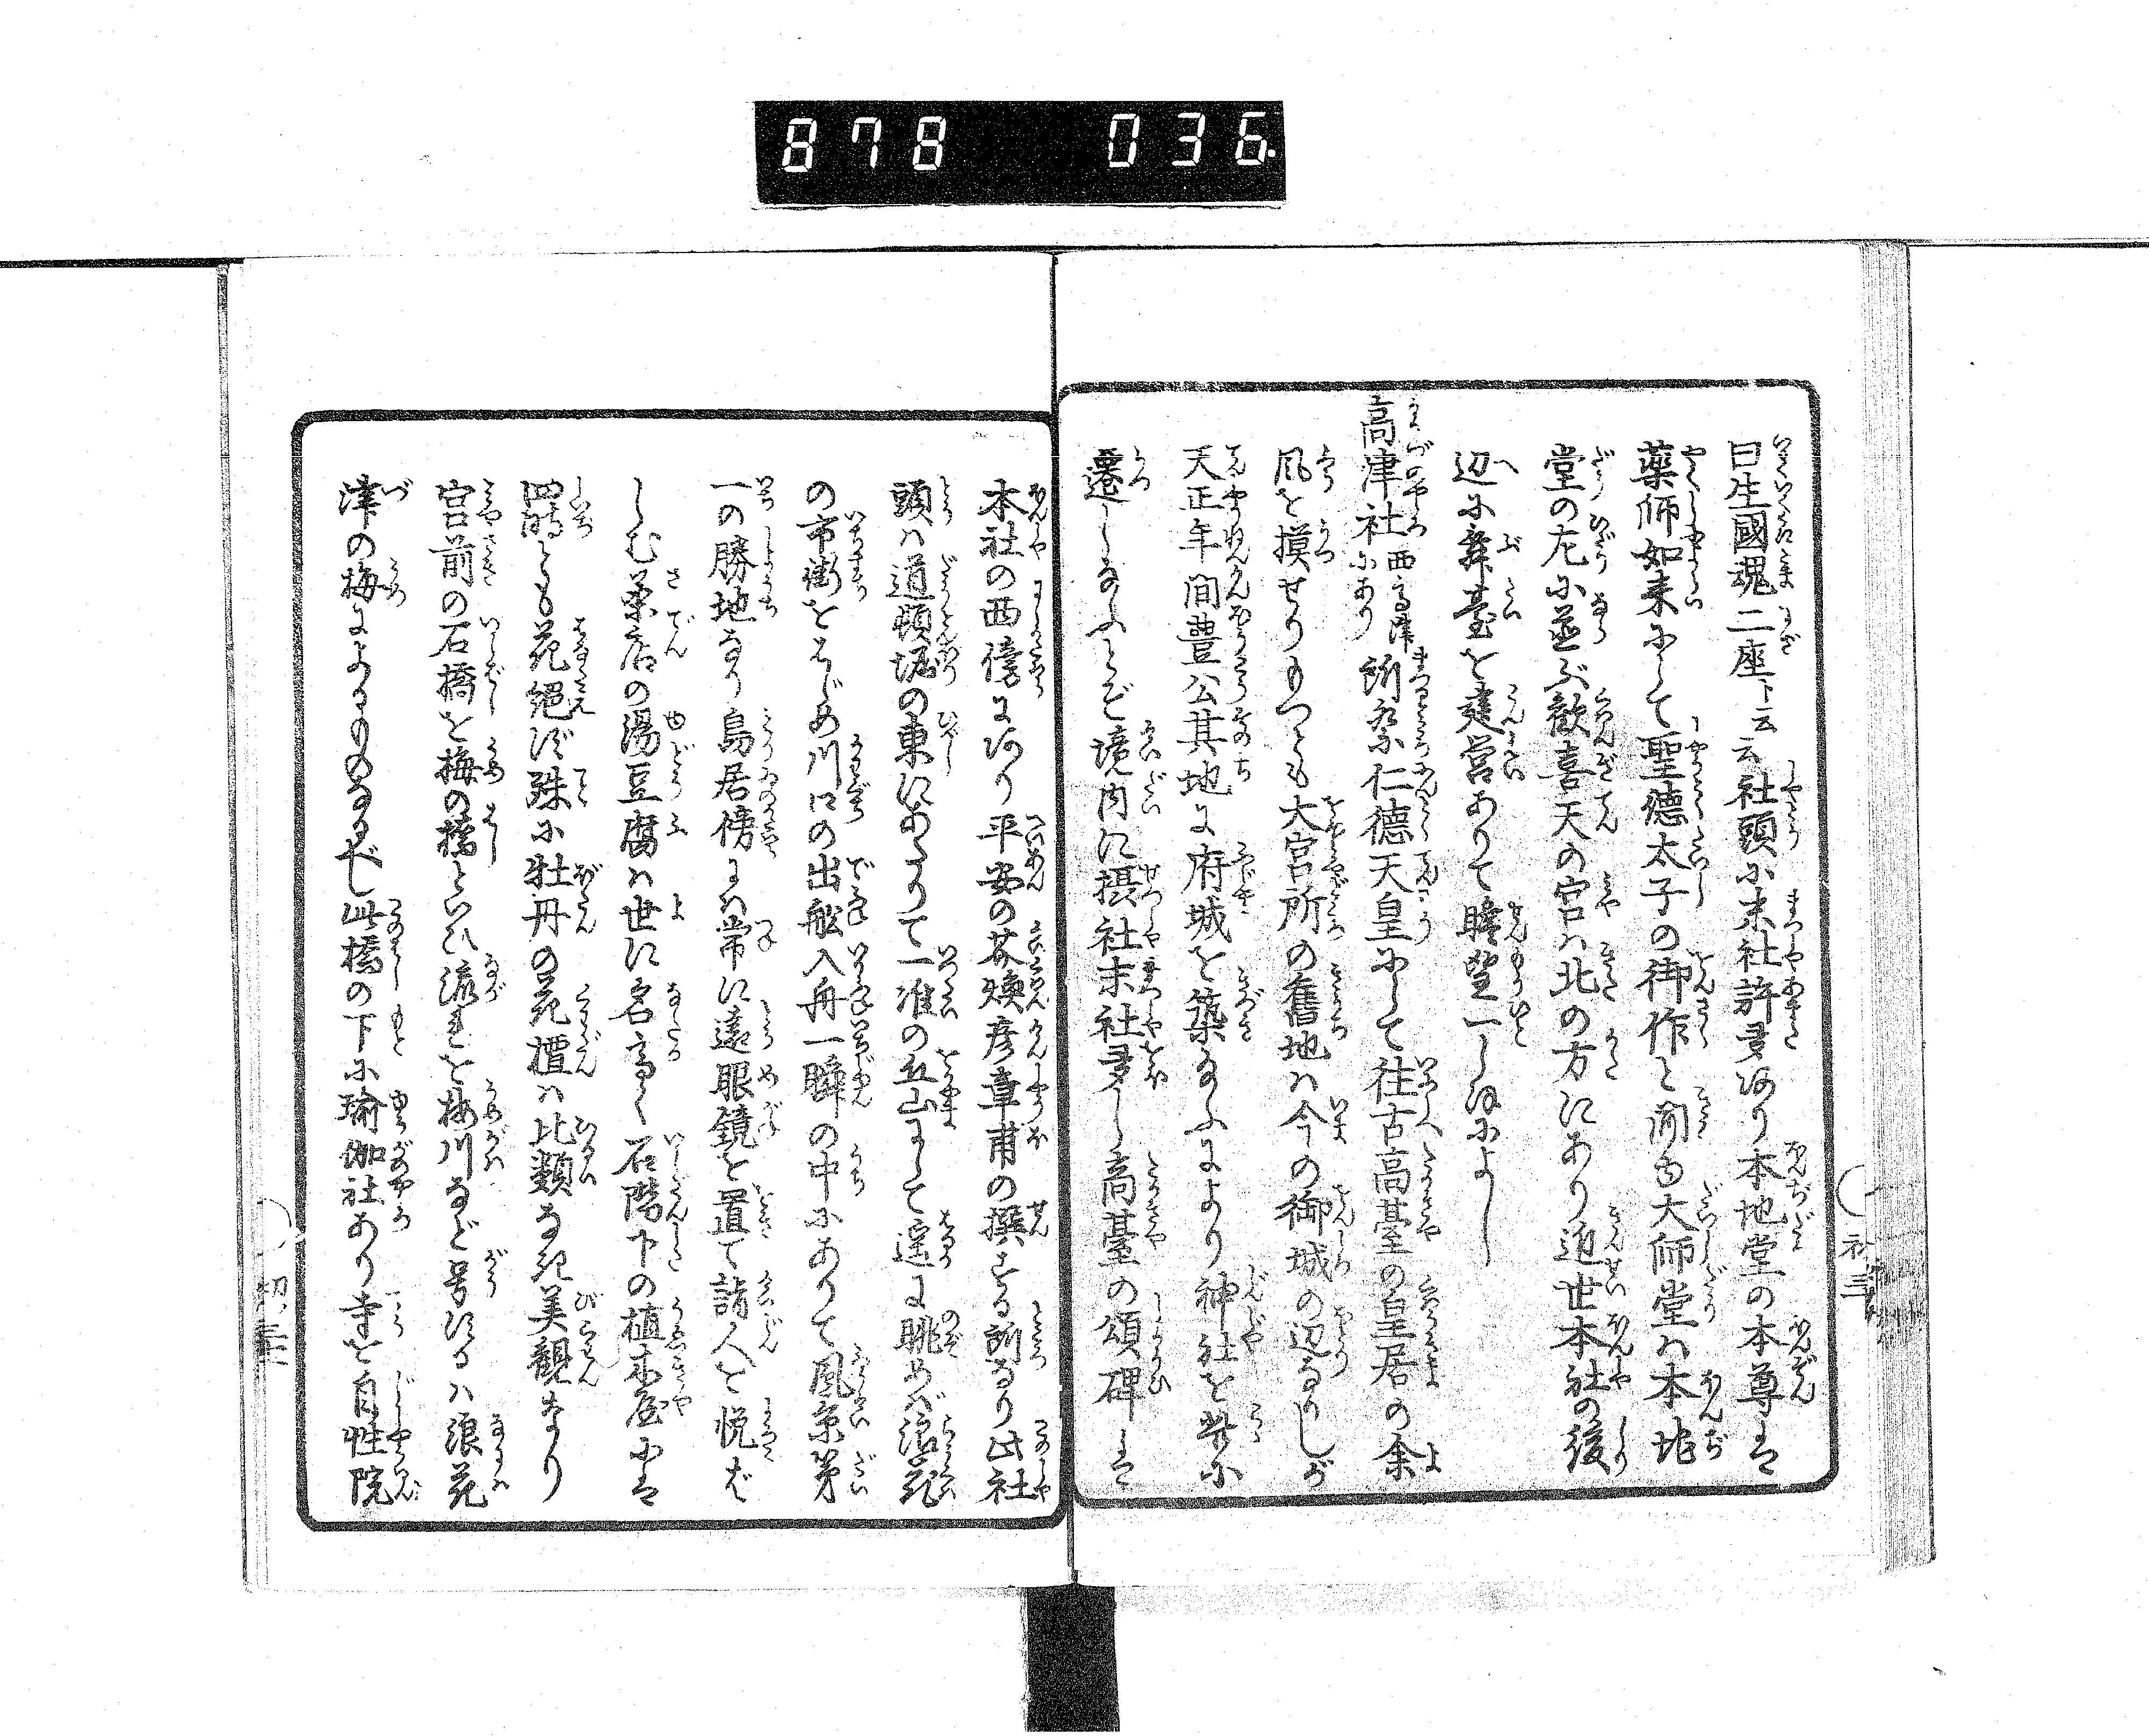 878 036
曰生國魂二座ト云云社頭に末社許多あり本地堂の本尊は
薬師如来にして聖徳太子の御作と聞ゆ大師堂は本地
堂の左に並ぶ歓喜天の宮は北の方にあり近世本社の後
辺に舞臺を建営ありて瞻望一しほによし
高津社 西高津にあり 所祭仁徳天皇にして往古高臺の皇居の余
風を摸せりもつとも大宮所の舊地は今の御城の辺なりしが
天正年間豊公其地に府城を築たまふにより神社を爰に
遷したまふとぞ境内に摂社末社多し高臺の頌碑は
本社の西傍にあり平安の芥煥彦章甫の撰する所なり此社
頭は道頓堀の東にあたりて一准の丘山にして遥に眺めば浪花
の市街をはじめ川口の出船入舟一瞬の中にありて風景第
一の勝地なり鳥居傍には常に遠眼鏡を置て詣人を悦ば
しむ茶店の湯豆腐は世に名高く石階下の植木屋には
四時とも花絶ず殊に牡丹の花壇は比類なき美観なり
宮前の石橋を梅の橋といひ流れを梅川など号けるは浪花
津の梅によるものなるべし此橋の下に瑜伽社あり寺を自性院
初ノ三